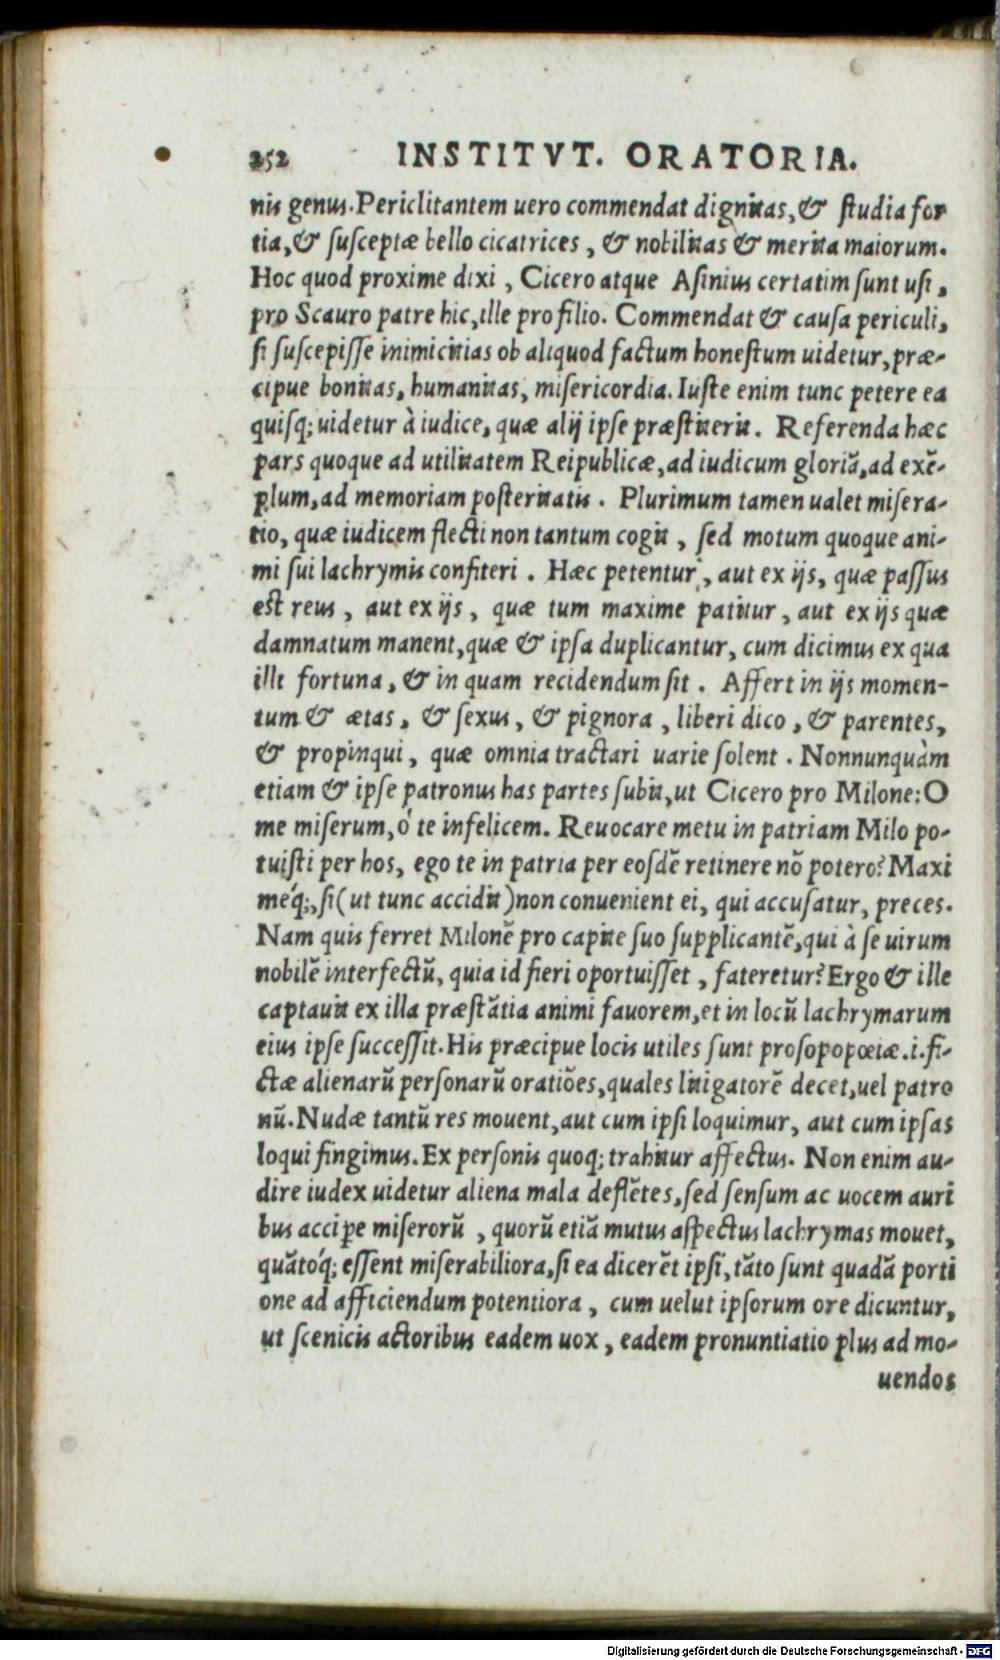 252 INSTITVT. ORATORIA.
nis genus. Periclitantem uero commendat dignitas, & ſtudia for
tia, & ſuſceptæ bello cicatrices, & nobilitas & merita maiorum.
Hoc quod proxime dixi, Cicero atque Aſinius certatim ſunt uſi,
pro Scauro patre hic, ille pro filio. Commendat & cauſa periculi,
ſi ſuſcepiſſe inimicitias ob aliquod factum honeſtum uidetur, præ-
cipue bonitas, humanitas, miſericordia. Iuſte enim tunc petere ea
quiſq; uidetur à iudice, quæ alij ipſe præſtiterit. Referenda hæc
pars quoque ad utilitatem Reipublicæ, ad iudicum gloriã, ad exẽ-
plum, ad memoriam poſteritatis. Plurimum tamen ualet miſera-
tio, quæ iudicem flecti non tantum cogit, ſed motum quoque ani-
mi ſui lachrymis confiteri. Hæc petentur, aut ex ijs, quæ paſſus
eſt reus, aut ex ijs, quæ tum maxime patitur, aut ex ijs quæ
damnatum manent, quæ & ipſa duplicantur, cum dicimus ex qua
illi fortuna, & in quam recidendum ſit. Affert in ijs momen-
tum & ætas, & ſexus, & pignora, liberi dico, & parentes,
& propinqui, quæ omnia tractari uarie ſolent. Nonnunquàm
etiam & ipſe patronus has partes ſubit, ut Cicero pro Milone: O
me miſerum, ô te infelicem. Reuocare me tu in patriam Milo po-
tuiſti per hos, ego te in patria per eoſdẽ retinere nõ potero? Maxi
meq́;, ſi (ut tunc accidit) non conuenient ei, qui accuſatur, preces.
Nam quis ferret Milonẽ pro capite ſuo ſupplicantẽ, qui à ſe uirum
nobilẽ interfectũ, quia id fieri oportuiſſet, fateretur? Ergo & ille
captauit ex illa præſtãtia animi fauorem, et in locũ lachrymarum
eius ipſe ſucceſſit. His præcipue locis utiles ſunt proſopopœiæ .i. fi-
ctæ alienarũ perſonarũ oratiões, quales litigatorẽ decet, uel patro
nũ. Nudæ tantũ res mouent, aut cum ipſi loquimur, aut cum ipſas
loqui fingimus. Ex perſonis quoq; trahitur affectus. Non enim au-
dire iudex uidetur aliena mala deflẽtes, ſed ſenſum ac uocem auri
bus accipe miſerorũ, quorũ etiã mutus aſpectus lachrymas mouet,
quãtoq́; eſſent miſerabiliora, ſi ea dicerẽt ipſi, tãto ſunt quadã porti
one ad afficiendum potentiora, cum uelut ipſorum ore dicuntur,
ut ſcenicis actoribus eadem uox, eadem pronuntiatio plus ad mo-
uendos
Digitalisierung gefördert durch die Deutsche Forschungsgemeinschaft - DFG